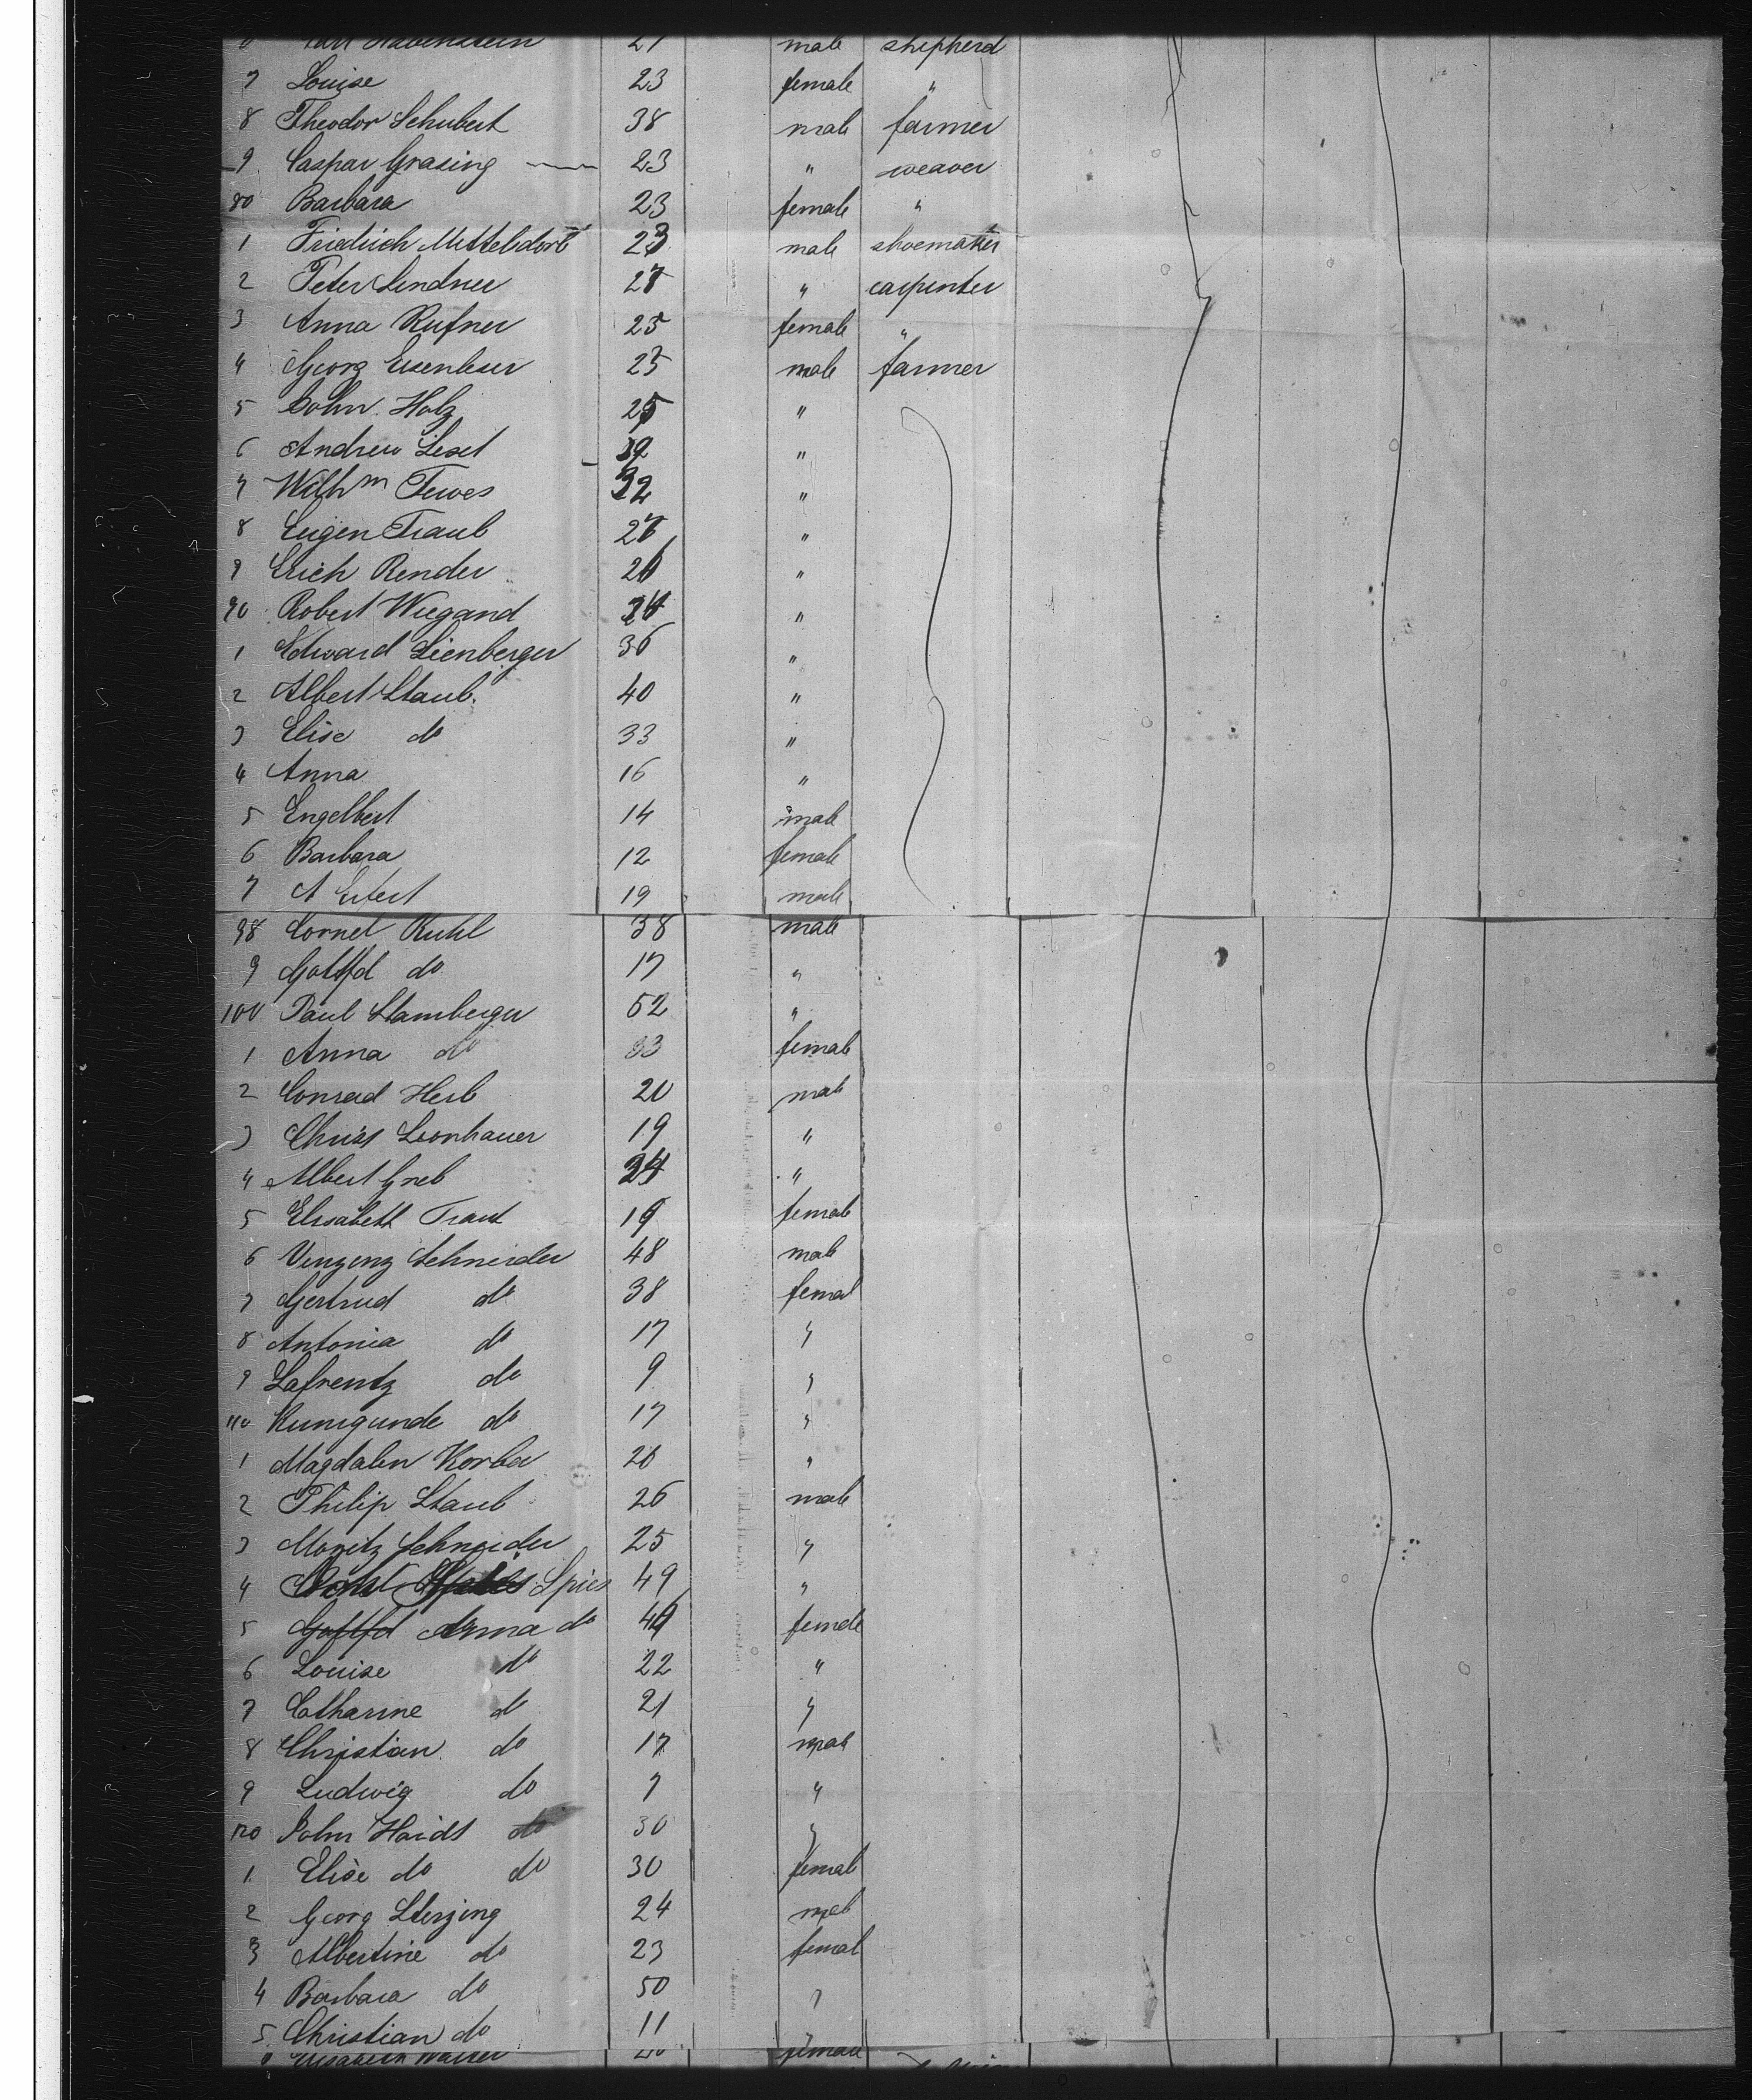 male shepherd
7 Louise 23 female "
8 Theodor Schubert 38 male farmer
9 Caspar Grasing 23 " weaver
80 Barbara 23 female "
1 Friedrich Mittelsdorf 23 male shoemaker
2 Peter Lindner 27 " carpenter
3 Anna Rufner 25 female "
4 Georg 25 male farmer
5 John Holz 25 "
6 Andrew "
7 Wilh m Tewes 32 "
8 Eugen Traub "
9 Erich Render 26 "
90 Robert Wiegand 24 "
1 Edward Lienberger 36 "
2 Albert Staub 40 "
3 Elise do 33 "
4 Anna 16 "
5 Engelbert 14 male
6 Barbara 12 female
7 A 19 male
98 Cornel Kuhl 38 male
9 Gottfd do 17 "
100 Paul Stamberger 52 "
1 Anna do 33 female
2 Conrad Herb 20 male
3 Christ Leonhauer 19 "
4 Albert Greb 24 "
5 Elisabeth Traut 19 female
6 Vinzenz Schneider 48 male
7 Gertrud do 38 femal
8 Antonia do 17 "
9 Lafrentz do 9 "
110 Kunigunde do 17 "
1 Magdalen Korber "
2 Philip Staub 26 male
3 Moritz Schneider 25 "
4 Spies 49 "
5 Gottfd Anna do female
6 Louise do 22 "
7 Catharine do 21 "
8 Christian do 17 male
9 Ludwig do 7 "
120 John Haidt do 30 "
1 Elise do do 30 female
2 Georg Sterzing 24 male
3 Albertine do 23 femal
4 Barbara do 50 "
5 Christian do 11
Elisabeth female